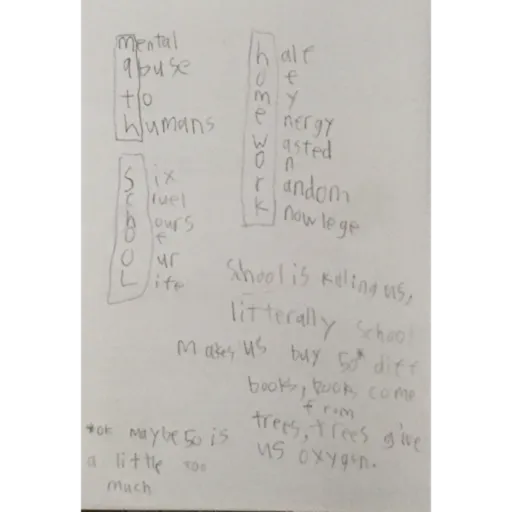 mental
abuse
to
humans
half
of
my
energy
wasted
on
random
knowlege
Six
cruel
hours
of
our
Life
School is kiling us,
litterally school
makes us buy 50* diff
books, books come
from
trees, trees give
us oxygen.
*ok maybe 50 is
a little too
much